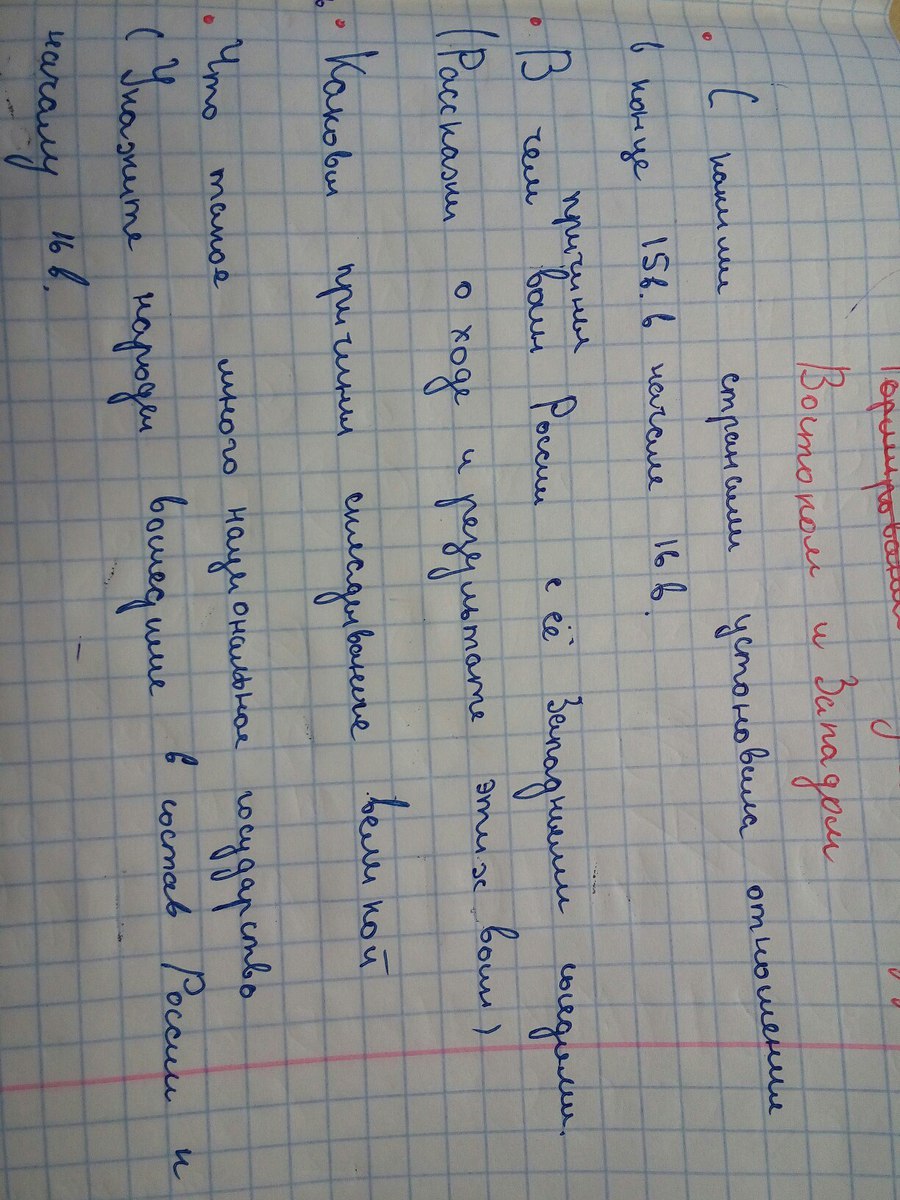 Востоком и Западом
• С какими странами установила отношения
в конце 15в. в начале 16 в.
причины
• В чем войн России с её Западними соседоми.
(Расскажи о ходе и результате этих войн)
• Каковы причины складывание великой
• Что такое много национальное государство
(Укажите народы вошедшие в состав России к
началу 16 в.